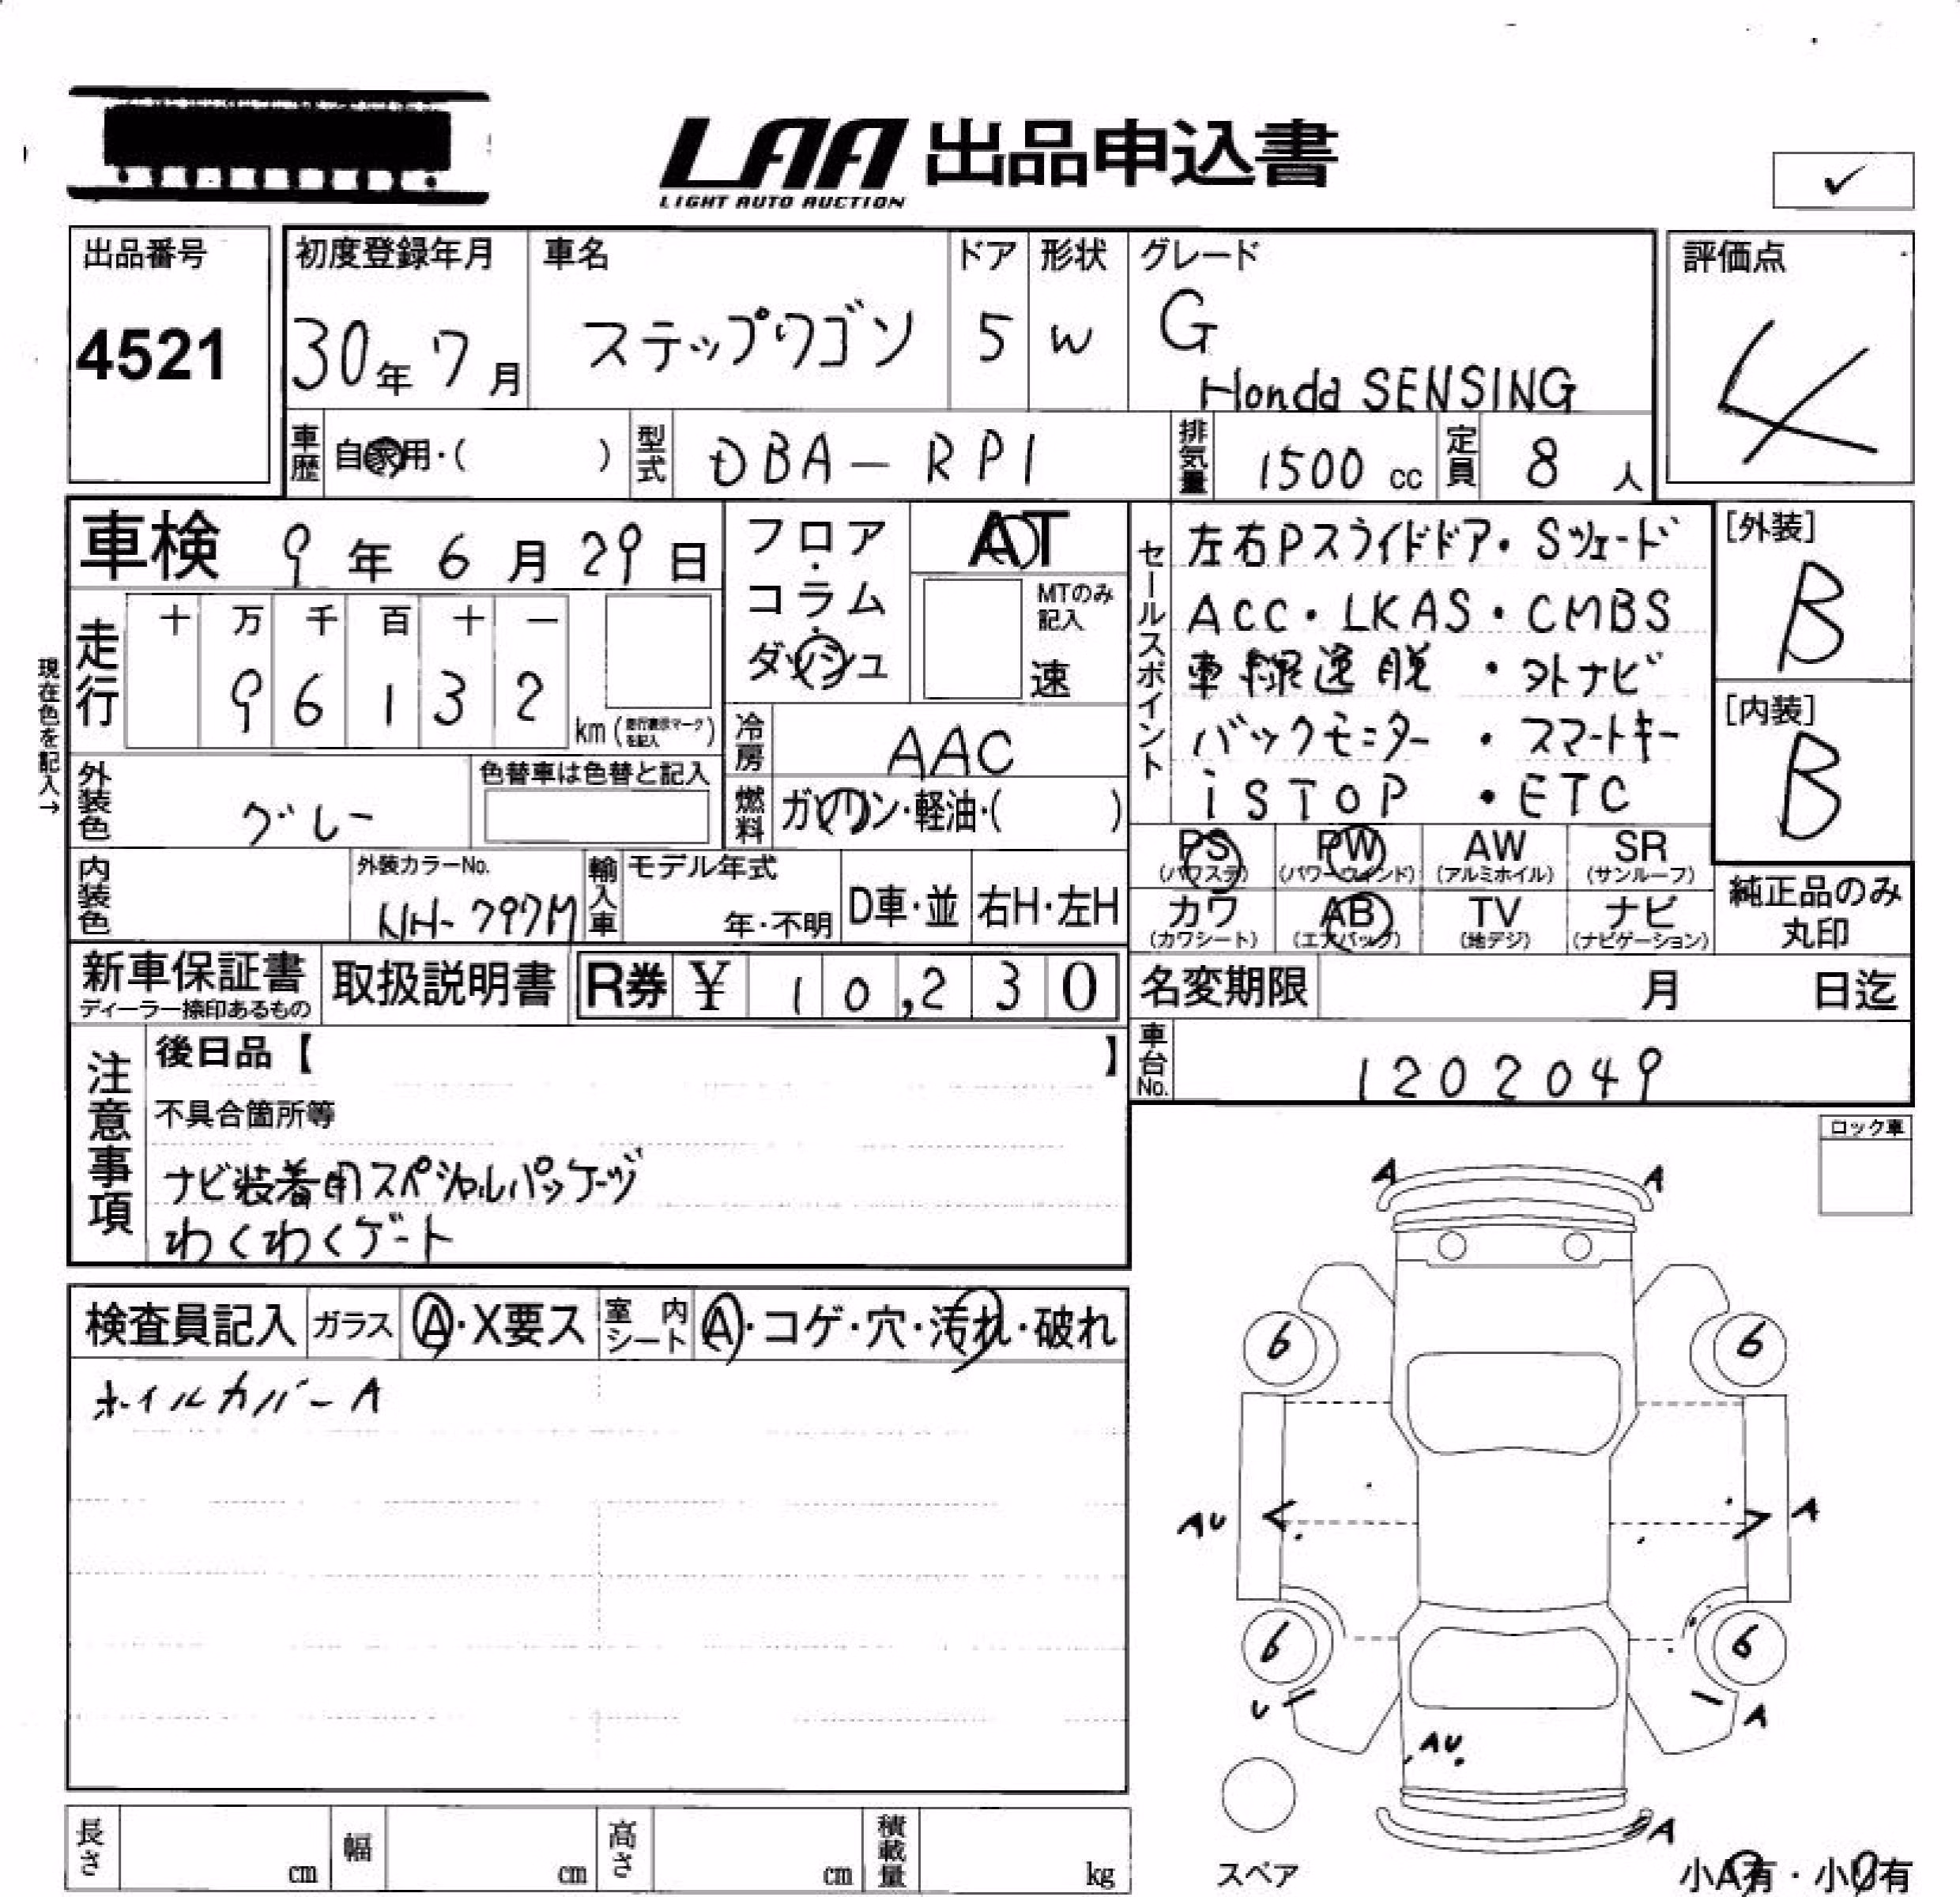 LAA 出品申込書
LIGHT AUTO AUCTION
✓
出品番号
4521
初度登録年月
30年 7月
車名
ステップワゴン
ドア
5
形状
W
グレード
G
Honda SENSING
評価点
4
車歴 自家用・( )
型式 DBA-RP1
排気量 1500 cc
定員 8 人
車検 9年 6月 29日
現在色を記入→
走行
十 万 千 百 十 一
9 6 1 3 2
km (走行表示マークを記入)
フロア・コラム・ダッシュ
AT
MTのみ記入
速
冷房 AAC
燃料 ガソリン・軽油・( )
外装色 グレー
色替車は色替と記入
内装色
外装カラーNo.
NH-797M
輸入車
モデル年式
年・不明
D車・並
右H・左H
セールスポイント
左右Pスライドドア・Sシェード
ACC・LKAS・CMBS
車線逸脱・外ナビ
バックモニター・スマートキー
iSTOP・ETC
[外装]
B
[内装]
B
PS (パワステ)
PW (パワーウインド)
AW (アルミホイル)
SR (サンルーフ)
カワ (カワシート)
AB (エアバッグ)
TV (地デジ)
ナビ (ナビゲーション)
純正品のみ
丸印
新車保証書
ディーラー捺印あるもの
取扱説明書
R券 ¥ 10,230
名変期限 月 日迄
車台No. 1202049
注意事項
後日品【 】
不具合箇所等
ナビ装着用スペシャルパッケージ
わくわくゲート
ロック車
検査員記入
ガラス A・X要ス
室内シート A・コゲ・穴・汚れ・破れ
ホイルカバーA
A A
6 6
AU A
6 6
U A
AU
A
スペア
小A有・小U有
長さ cm
幅 cm
高さ cm
積載量 kg